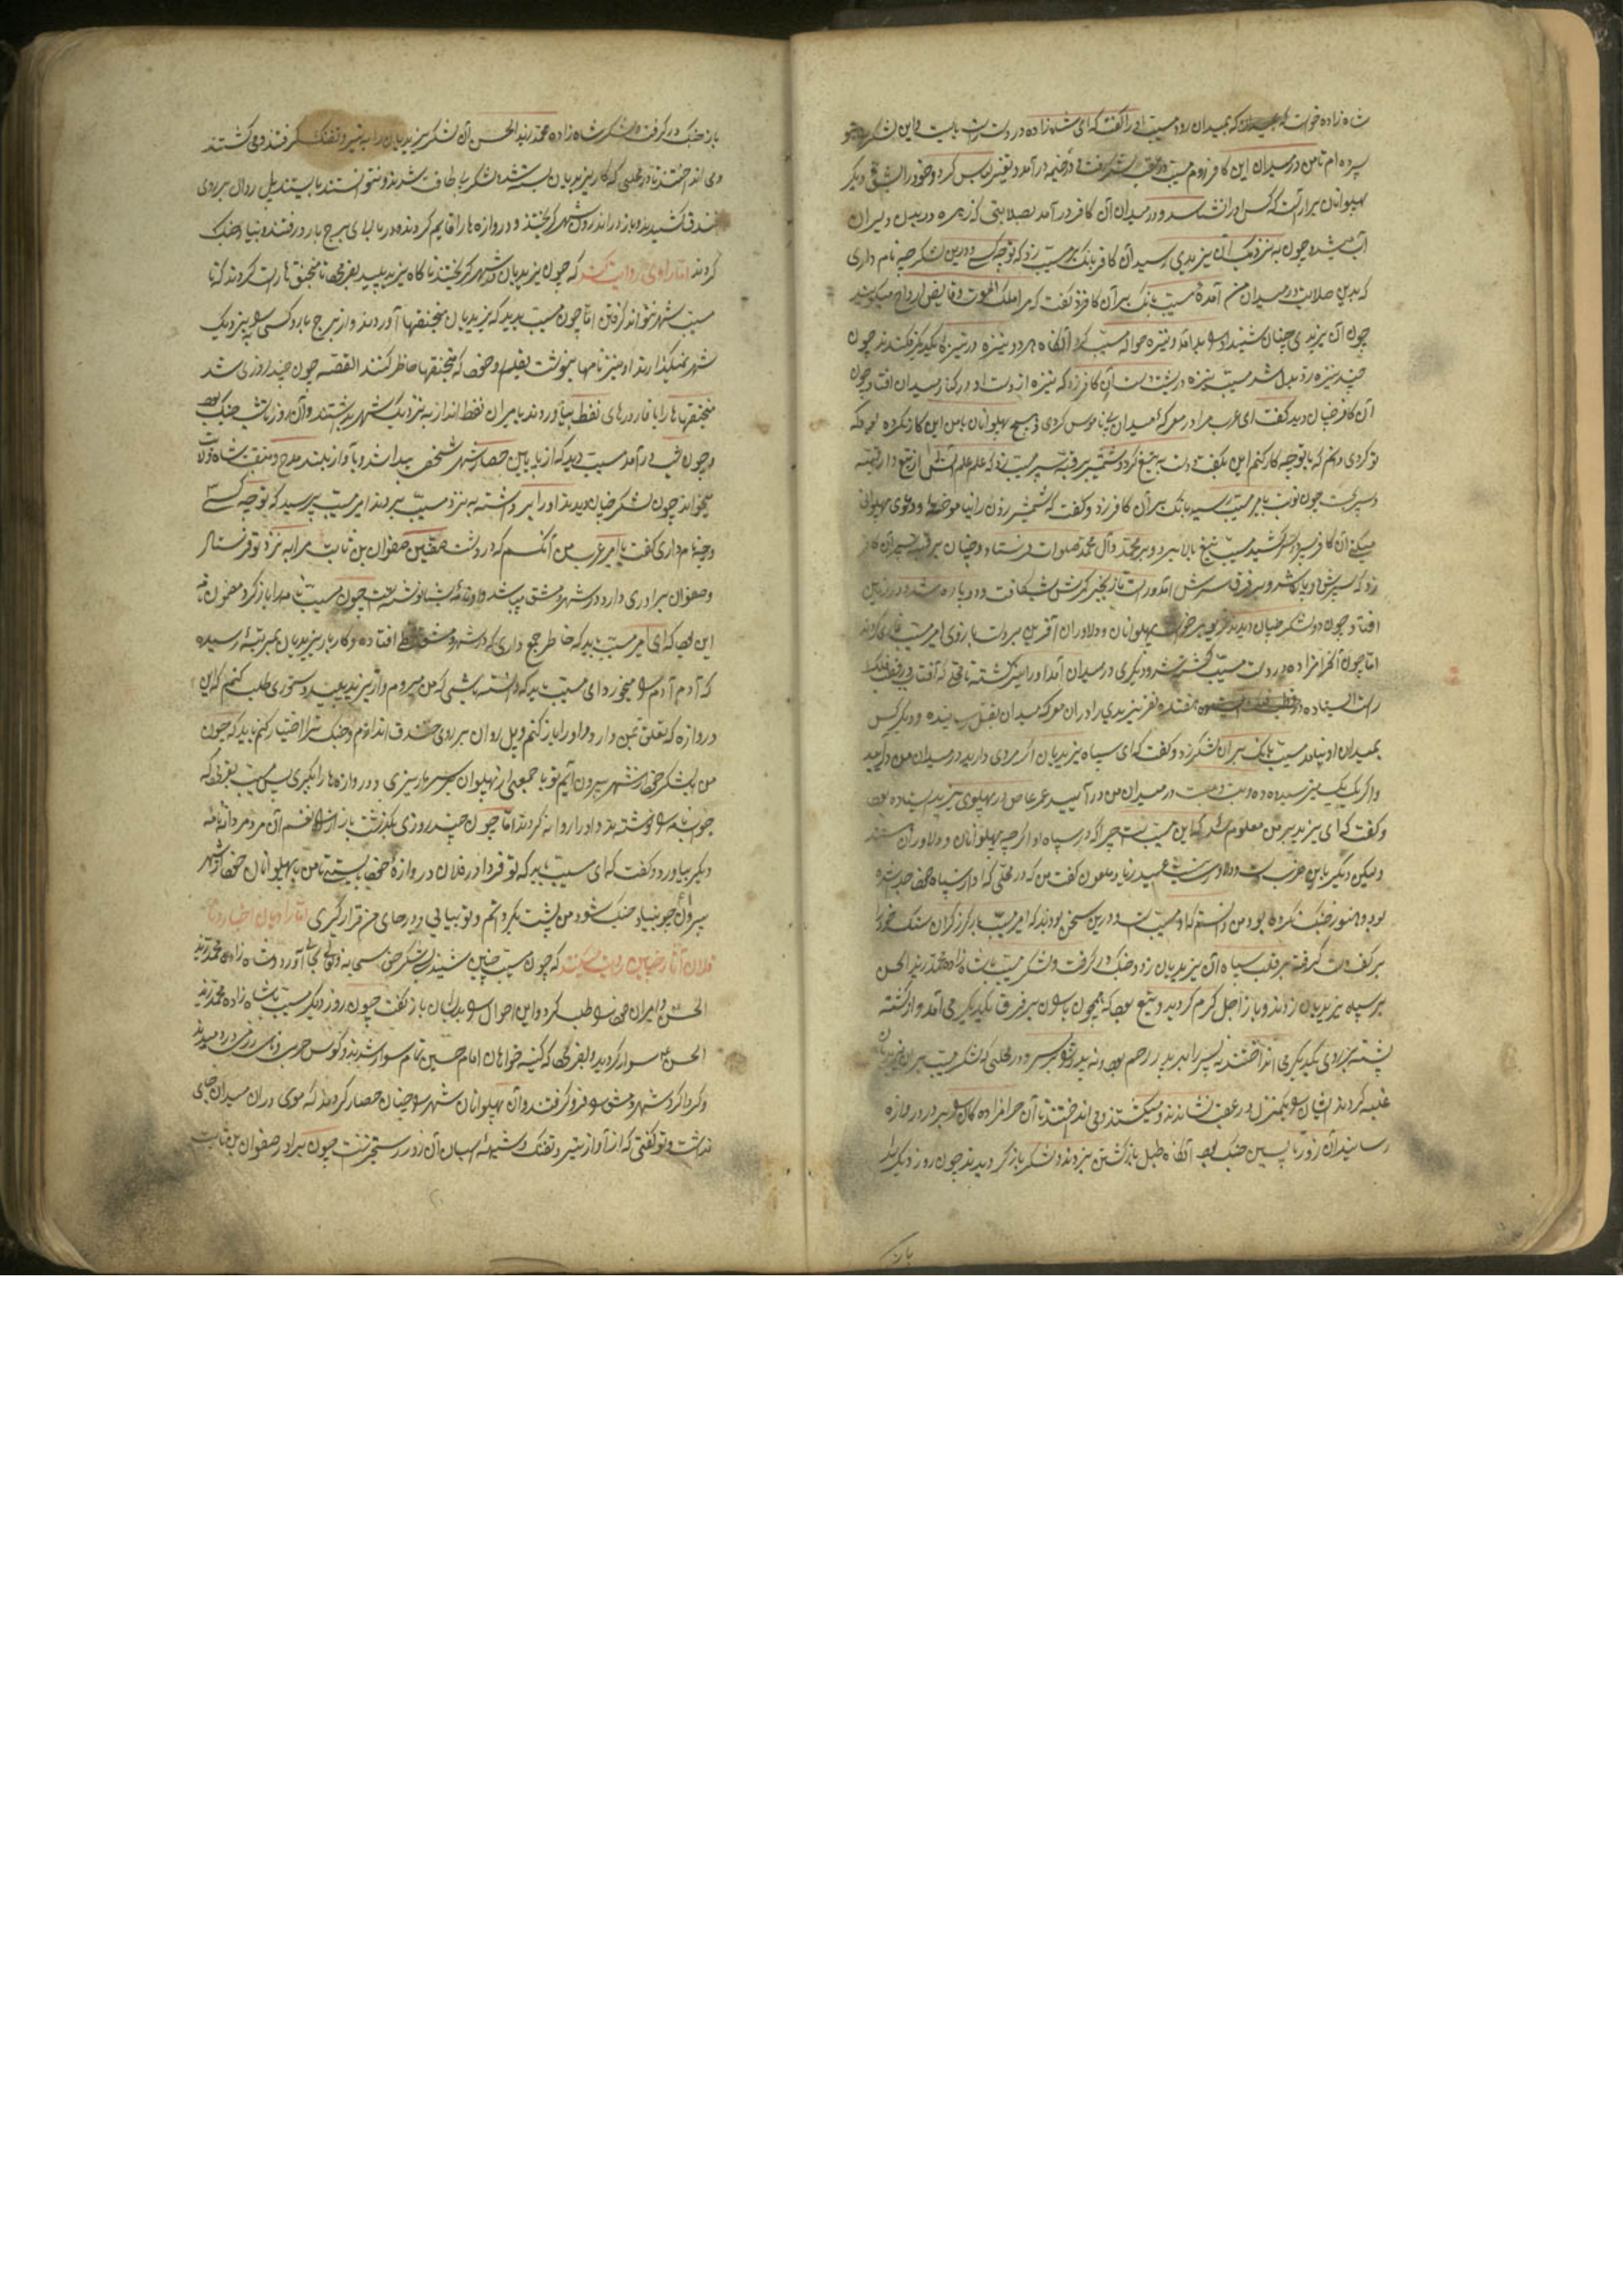 شاه زاده خواست که بمیدان رود مسیب او را گفت که ای شاه زاده در دولت بایست و این لشکر
سپرده ام تا من در میدان این کافر روم مسیب در عقب لشکر رفت و در خیمه در آمد و تغییر لباس کرد و خود را بشکل دیگر
پهلوانان برآراست که کس او را نشناسد و در میدان آن کافر در آمد بصلابتی که زهره در بدن دلیران
آب میشد و چون به نزدیک آن یزیدی رسید آن کافر بانک بر مسیب زد که تو چه کسی و درین لشکر چه نام داری
که بدین صلابت در میدان من آمدهٔ مسیب بانک بر آن کافر زد و گفت که مرا ملک الموت و قابض ارواح میگویند
چون آن یزیدی چنان شنید او را بد آمد و نیزه حواله مسیب کرد آنگاه هر دو نیزه در نیزه یکدیگر فکندند چون
چند نیزه رد بدل شد مسیب نیزه در پشت دست آن کافر زد که نیزه از دست او در کنار میدان افتاد چون
آن کافر چنان دید گفت ای عرب مرا در معرکه میدان بی ناموس کردی و هیچ پهلوانان با من این کار نکرده بود که
تو کردی دانم که با تو چه کار کنم این بگفت و دست به تیغ کرد و شمشیر بر قبه سپر مسیب زد که علم علم آتش از تیغ و از قبه
سپر بجست چون نوبت بامیر مسیب رسید بانک بر آن کافر زد و گفت که شمشیر زدن را نیاموخته و دعوی پهلوانی
میکنی آن کافر سپر در سر کشید مسیب تیغ بالا برد و بر محمد و آل محمد صلوات فرستاد و چنان بر قبه سپر آن کافر
زد که سپرش دو پاره شد و بر فرق سرش آمد و راست تا زنجیر کمرش شکافت و دو پاره شد و در زمین
افتاد چون دو لشکر چنان دیدند غریو برخواست پهلوانان و دلاوران آفرین بر دست بازوی امیر مسیب میکردند
اما چون آن حرامزاده در دست مسیب کشته شد و دیگری در میدان آمد او را نیز کشته تا وقتی که آفتاب در قطب فلک
راست ایستاده هفتده نفر یزیدی را در آن معرکه میدان بقتل رسانیده و دیگر کس
بمیدان او نیامد مسیب بانک بر آن لشکر زد و گفت که ای سپاه یزیدیان اگر مردی دارید در میدان من در آیید
و اگر یک یک نمیرسید ده ده و بیست بیست در میدان من در آیید عمر عاص در پهلوی یزید ایستاده بود
و گفت که ای یزید بر من معلوم شد که این مسیب است چرا که در سپاه او اگر چه پهلوانان و دلاوران هستند
ولیکن دیگر باین ضرب دست و دلاوری نیست عبید زیاد ملعون گفت من که در وقتی که او از سپاه خود جدا شده
بود و هنوز جنگ نکرده بود من دانستم که او مسیب است و درین سخن بودند که امیر مسیب باز گرز گران سنگ خود را
بر کف دست گرفته بر قلب سپاه آن یزیدیان زد و جنگ در گرفت و لشکر مسیب با شاه زاده محمد زید الحسن
بر سپاه یزیدیان زدند و بازار اجل گرم گردید و تیغ بود که همچون باران بر فرق یکدیگر می آمد و از کشته
پشته بر روی یکدیگر می انداختند نه پسر را بر پدر رحم بود و نه پدر را بر پسر و در وقتی که لشکر مسیب بر آن یزیدیان
غلبه کردند ایشان را یک منزل در عقب نشاندند و میکشتند و می انداختند تا آن حرامزاده گان را بر در دروازه
رسانیدند آن روز تا پسین جنگ بود آنگاه طبل بازگشتن بزدند و لشکر باز گردیدند چون روز دیگر شد
باز
باز جنگ در گرفت و لشکر شاه زاده محمد زید الحسن آن لشکر یزیدیان را به تیر و تفنگ گرفتند و می کشتند
و می انداختند تا در وقتی که کار یزیدیان بسته شد و لشکر بی طاقت شدند و نتوانستند بایستند پل روان بر روی
خندق کشیدند و باز در اندرون شهر گریختند و دروازه ها را قایم کردند و در بالای برج بارو رفتند و بنیاد جنگ
کردند اما راوی روایت کند که چون یزیدیان در شهر گریختند ناگاه یزید پلید بفرمود تا منجنیق ها راست کردند که تا
مسیب شهر نتواند گرفتن اما چون مسیب بدید که یزیدیان منجنیقها آوردند و از برج بارو کسی را بنزدیک
شهر نمیگذارند او نیز نامها بنوشت بقلم و خود که منجنیقها حاضر کنند القصه چون چند روزی شد
منجنیقها را با قاروره‌های نفط بیاوردند با مران نفط انداز به نزدیک شهر بداشتند و آن روز تا شب جنگ بود
و چون شب در آمد مسیب دید که از پایین حصار شهر شخصی پیدا شد و بآواز بلند مدح و منقبت شاه مردان
میخواند چون لشکر چنان دیدند او را برداشته به نزد مسیب بردند امیر مسیب پرسید که تو چه کسی
و چه نام داری گفت یا امیر عرب من آنکسم که در دمشق صفوان بن ثابت مرا به نزد تو فرستاد
و صفوان برادری دارد در شهر دمشق میباشد و او نامهٔ بشما نوشته است چون مسیب نامه را باز کرد مضمون نامه
این بود که ای امیر مسیب باید که خاطر جمع داری که در شهر دمشق قحط افتاده و کار بار یزیدیان بمرتبهٔ رسیده
که آدم آدم را میخورد ای مسیب باید که دانسته باشی که من میروم و از یزید پلید دستوری طلب کنم که این
دروازه که تعلق بمن دارد و او را باز کنم و پل روان بر روی خندق اندازم و جنگ ترا اختیار کنم باید که چون
من با لشکر خود از شهر بیرون آیم تو با جمعی از پهلوانان بر سر ما ریزی و دروازه ها را بگیری پس مسیب بفرمود که
جواب نامه را نوشتند و او را روانه کردند اما چون چند روزی بگذشت باز از قسم آن مرد مردانه نامه
دیگر بیاورد و گفت که ای مسیب باید که تو فردا در فلان دروازه خود بایستی تا من با پهلوانان خود از شهر
بیرون آیم چون بنیاد جنگ شود من پشت بگردانم و تو بیایی و در جای من قرار گیری اما راویان اخبار و نا
قلان آثار چنین روایت میکنند که چون مسیب چنین شنید لشکر حق سبحانه و تعالی بجا آورد و شاه زاده محمد زید
الحسن و امیران خود را طلب کرد و این احوال را بدیشان باز گفت چون روز دیگر مسیب با شاه زاده محمد زید
الحسن سوار گردیده و بفرمود که کینه خواهان امام حسین تمام سوار شدند و کوس حرب و نای رزمی در دمیدند
و گرداگرد شهر دمشق را فرو گرفتند و آن پهلوانان شهر را چنان حصار کردند که موی در آن میدان جای
نداشت و تو گفتی که از آواز تیر و تفنگ و شیههٔ اسبان آن روز رستخیز است چون برادر صفوان بن ثابت